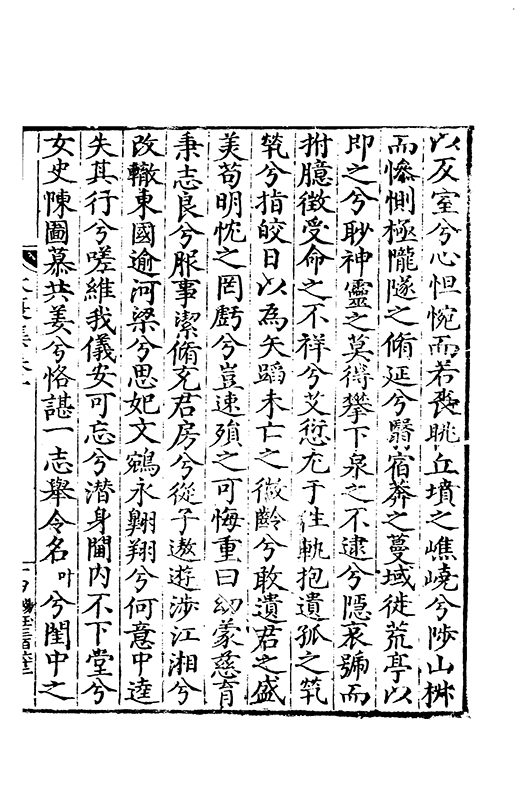 以反室兮心怛惋而若喪眺丘墳之嶕嶢兮陟山椒
而慘惻極隴隧之脩延兮翳宿莽之蔓域徙荒亭以
即之兮眇神靈之莫得攀下泉之不逮兮隱哀號而
拊臆徵受命之不祥兮艾愆尤于往軌抱遺孤之煢
煢兮指皎日以為矢蹈未亡之微齡兮敢遺君之盛
美苟明忱之罔虧兮豈速殞之可悔重曰幼蒙慈育
秉志良兮服事潔脩充君房兮從子遨遊涉江湘兮
改轍東國逾河梁兮思妃文鵷永翺翔兮何意中逵
失其行兮嗟維我儀安可忘兮潜身閫内不下堂兮
女史陳圖慕共姜兮恪諶一志舉令名叶兮閨中之